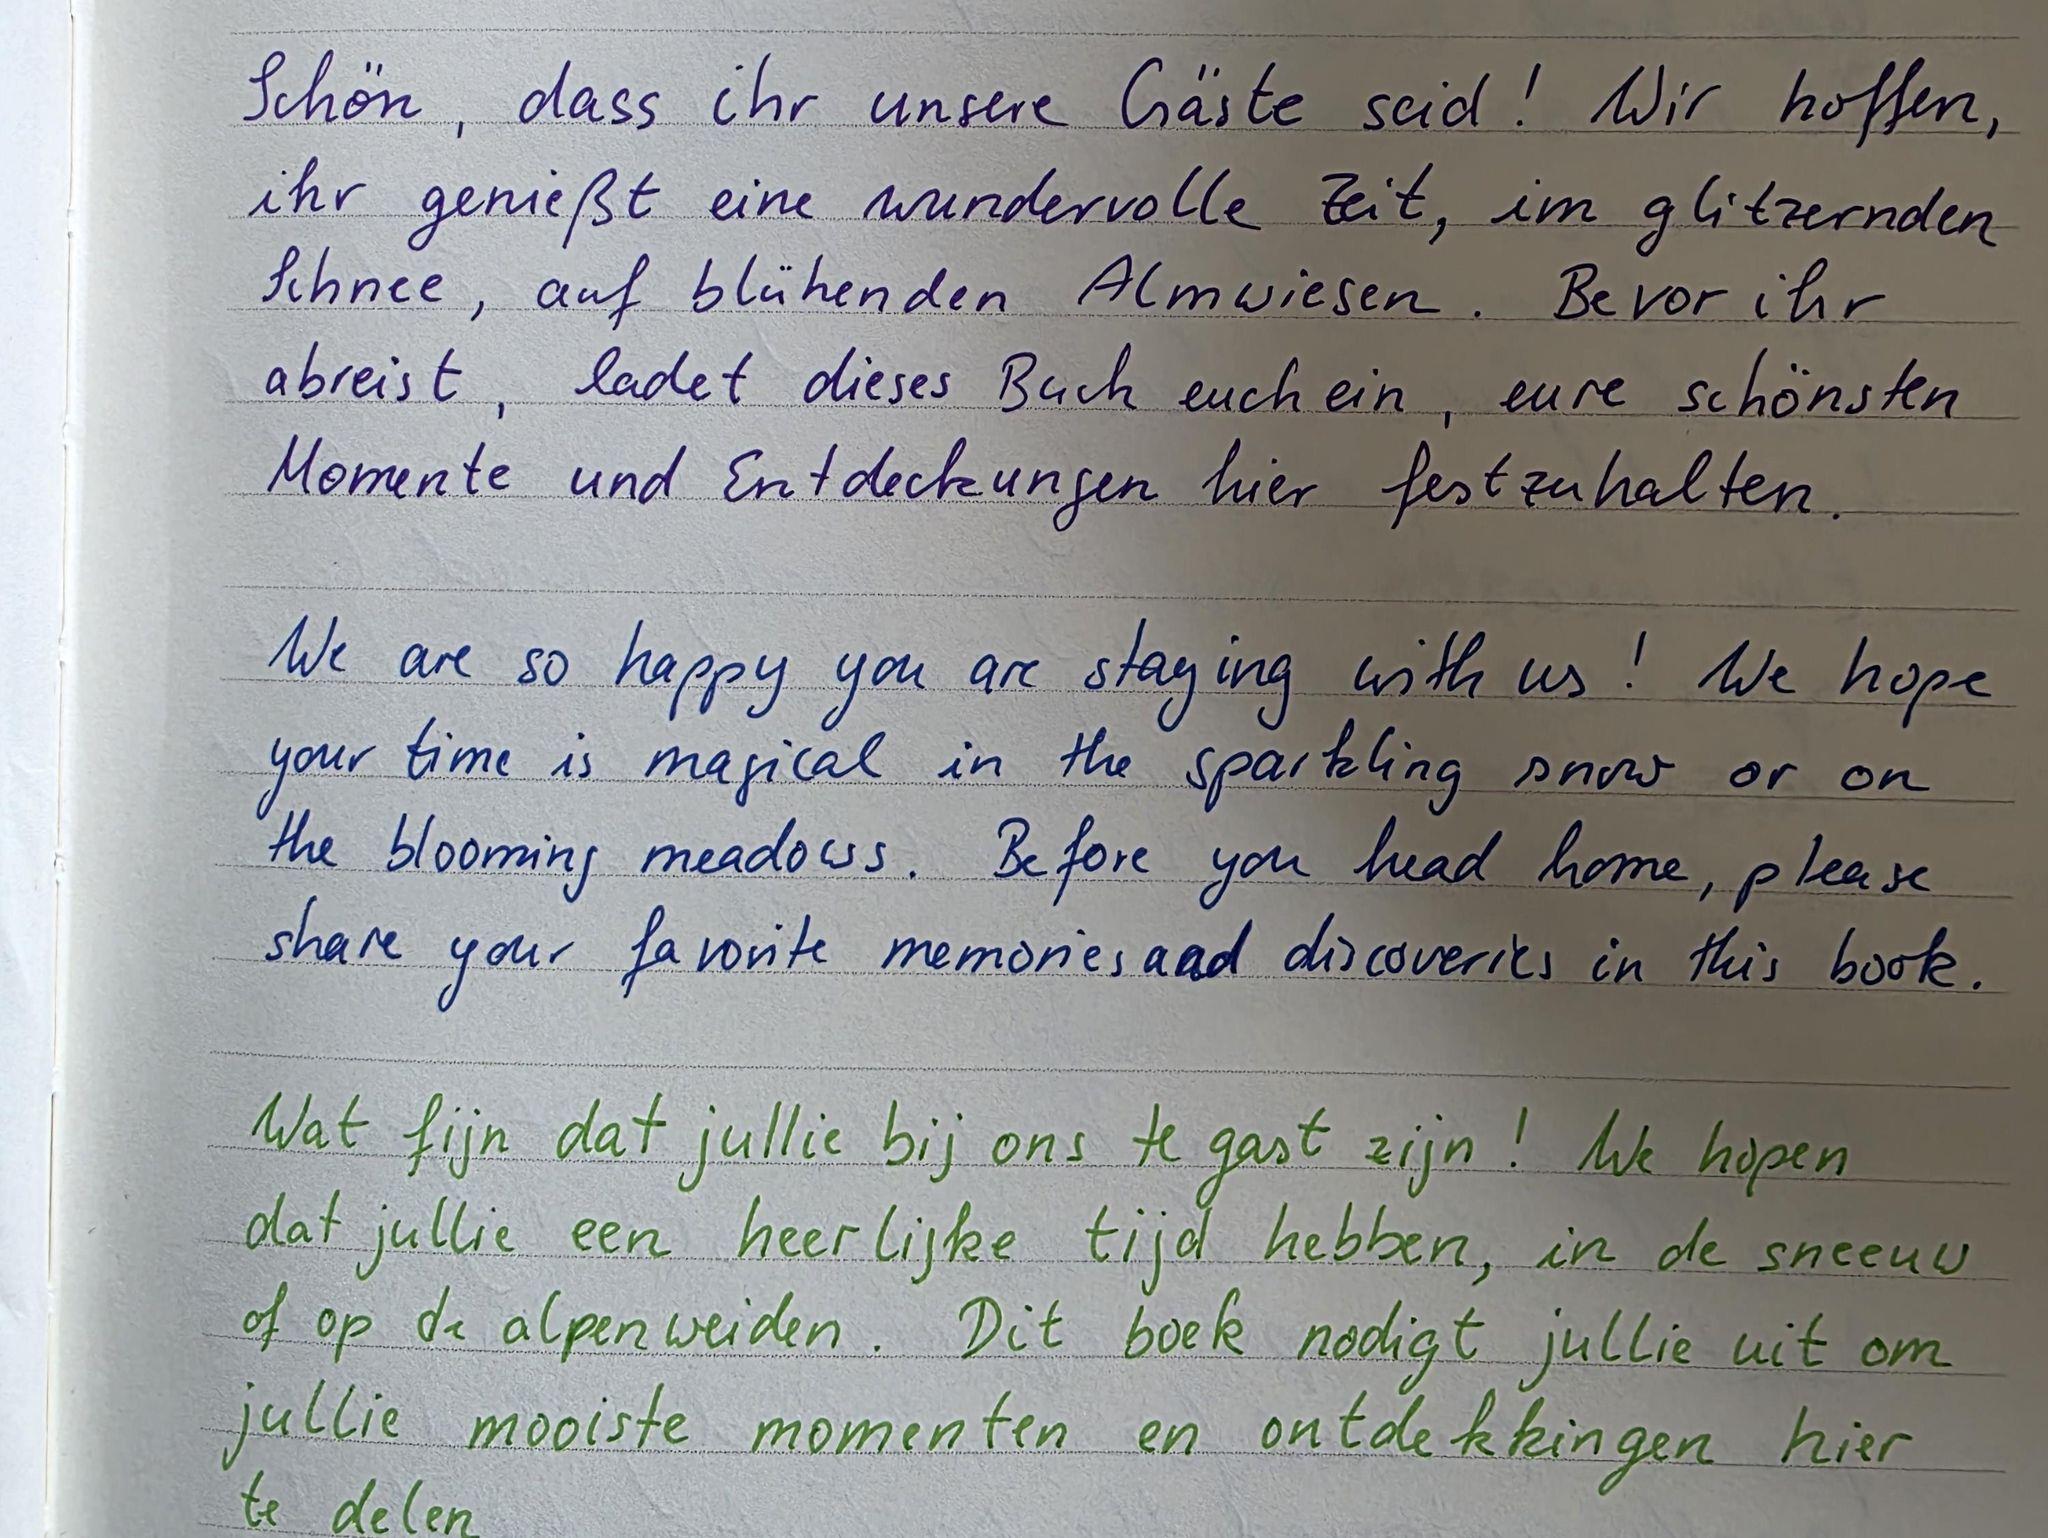 Schön, dass ihr unsere Gäste seid! Wir hoffen,
ihr genießt eine wundervolle Zeit, im glitzernden
Schnee, auf blühenden Almwiesen. Bevor ihr
abreist, ladet dieses Buch euch ein, eure schönsten
Momente und Entdeckungen hier festzuhalten.
We are so happy you are staying with us! We hope
your time is magical in the sparkling snow or on
the blooming meadows. Before you head home, please
share your favorite memories and discoveries in this book.
Wat fijn dat jullie bij ons te gast zijn! We hopen
dat jullie een heerlijke tijd hebben, in de sneeuw
of op de alpenweiden. Dit boek nodigt jullie uit om
jullie mooiste momenten en ontdekkingen hier
te delen